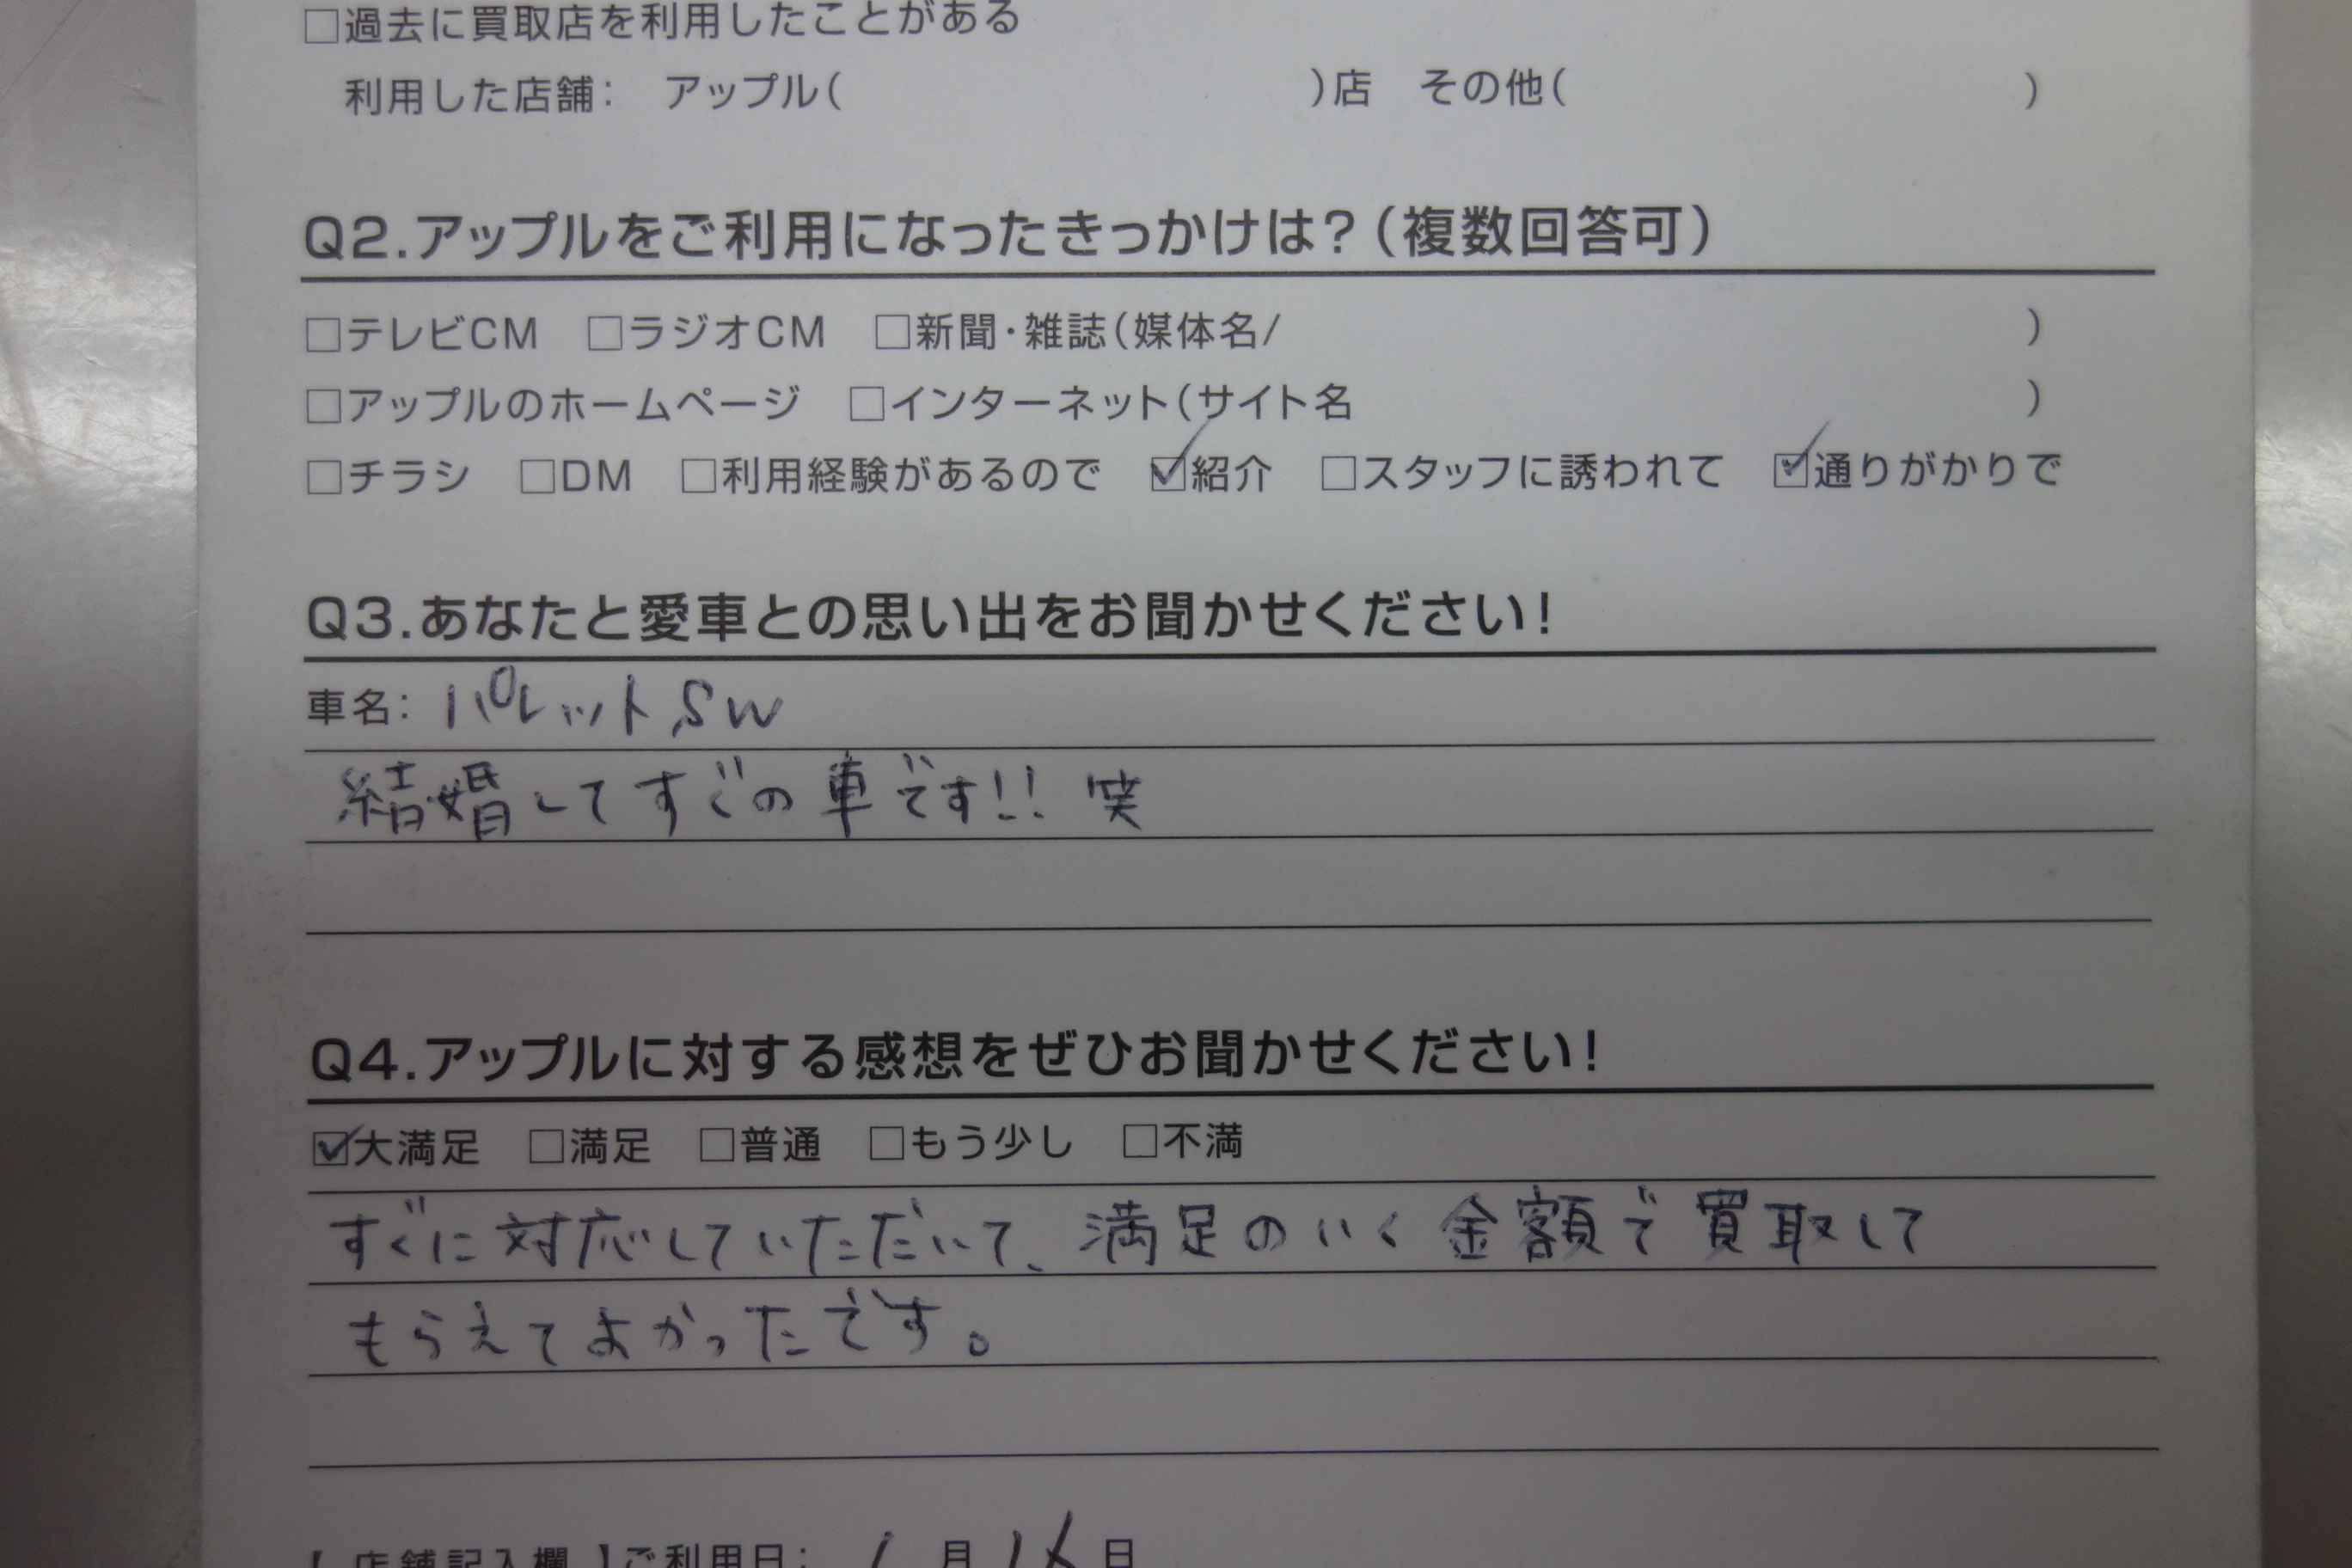 □過去に買取店を利用したことがある
利用した店舗： アップル( )店 その他( )
Q2.アップルをご利用になったきっかけは？(複数回答可)
□テレビCM □ラジオCM □新聞・雑誌(媒体名/ )
□アップルのホームページ □インターネット(サイト名 )
□チラシ □DM □利用経験があるので ☑紹介 □スタッフに誘われて ☑通りがかりで
Q3.あなたと愛車との思い出をお聞かせください！
車名： パレットSW
結婚してすぐの車です!! 笑
Q4.アップルに対する感想をぜひお聞かせください！
☑大満足 □満足 □普通 □もう少し □不満
すぐに対応していただいて、満足のいく金額で買取して
もらえてよかったです。
【 店舗記入欄 】ご利用日： 月 日